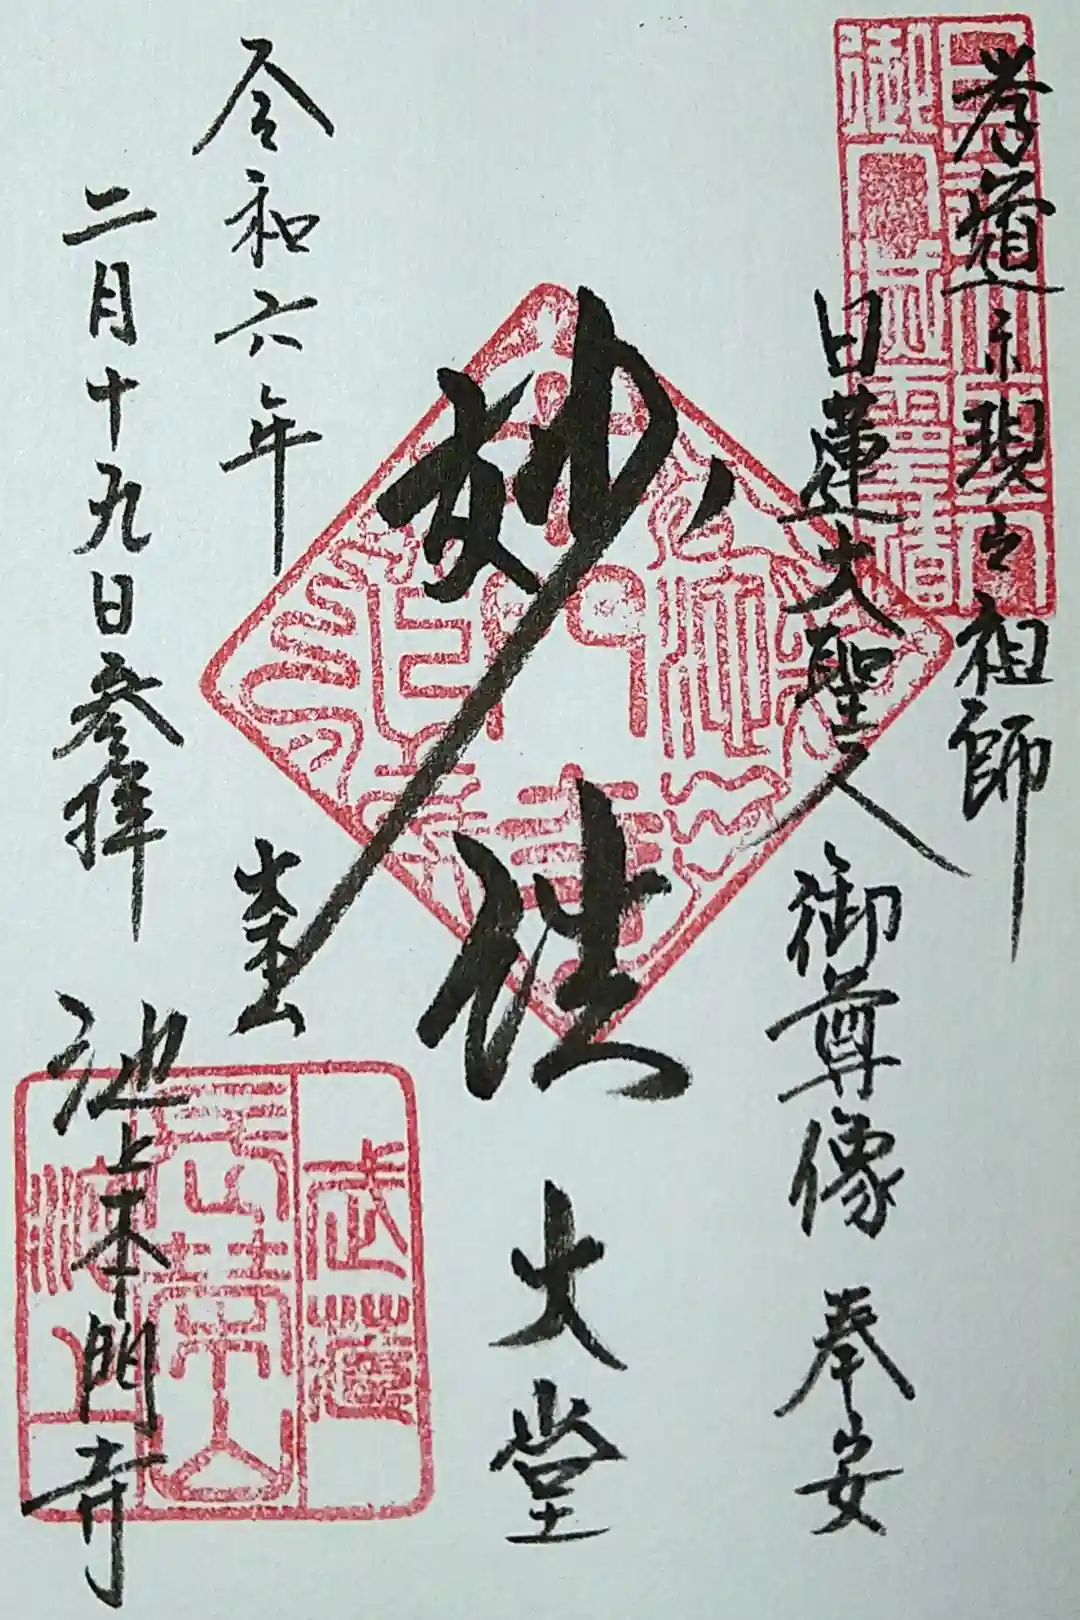 孝道示現之祖師
日蓮大聖人御尊像 奉安
妙法
大堂
令和六年
二月十九日参拝
池上本門寺